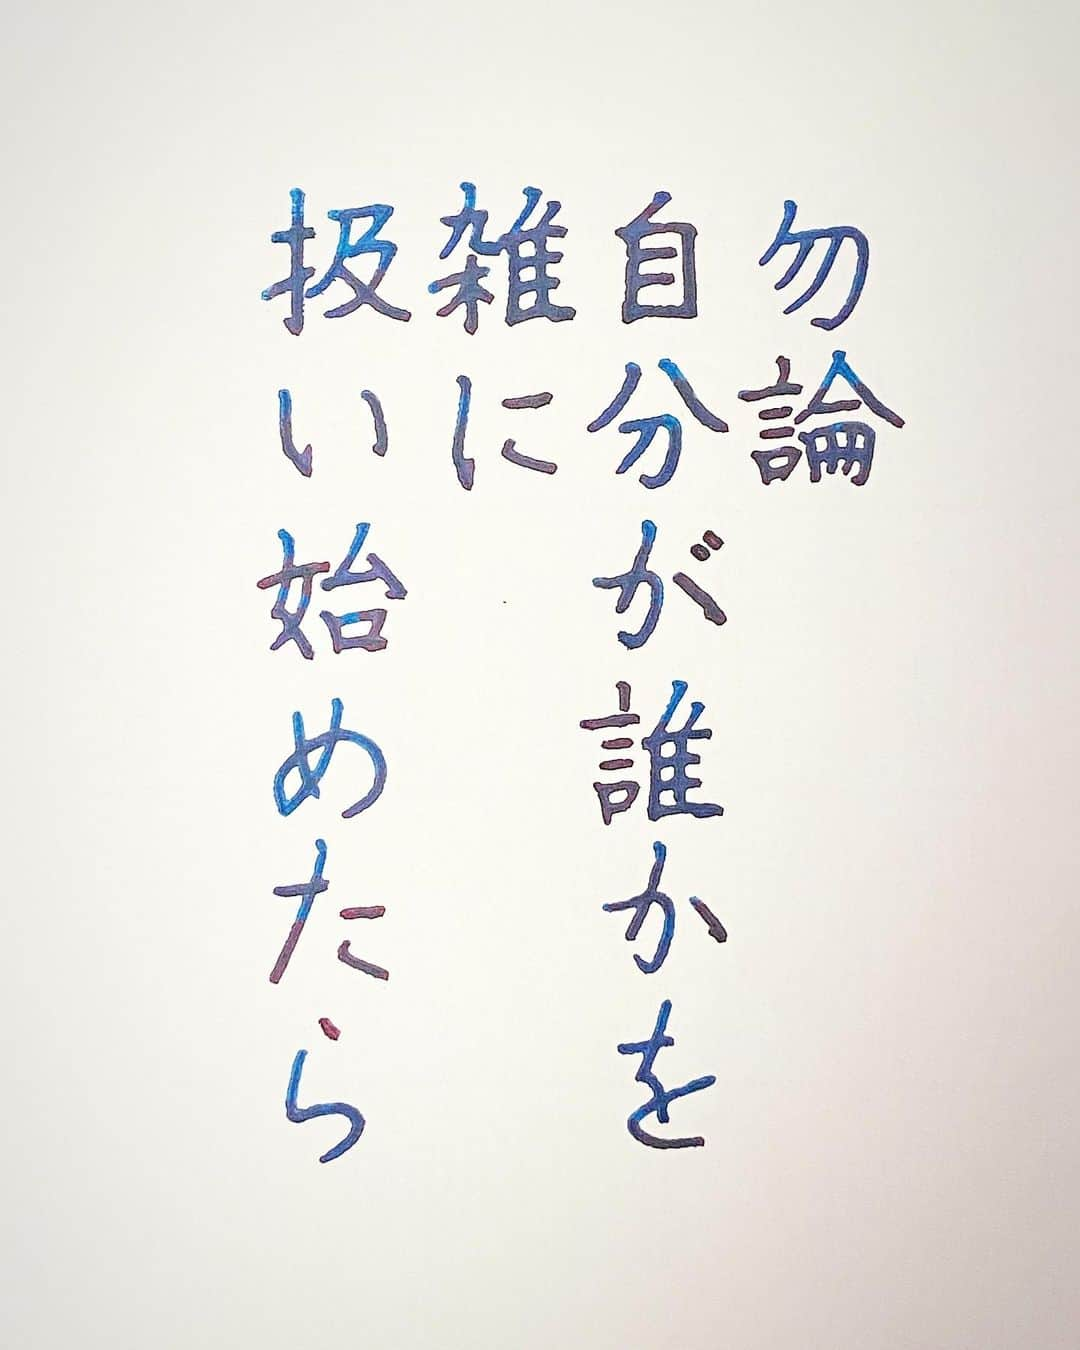 勿論
自分が誰かを
雑に
扱い始めたら